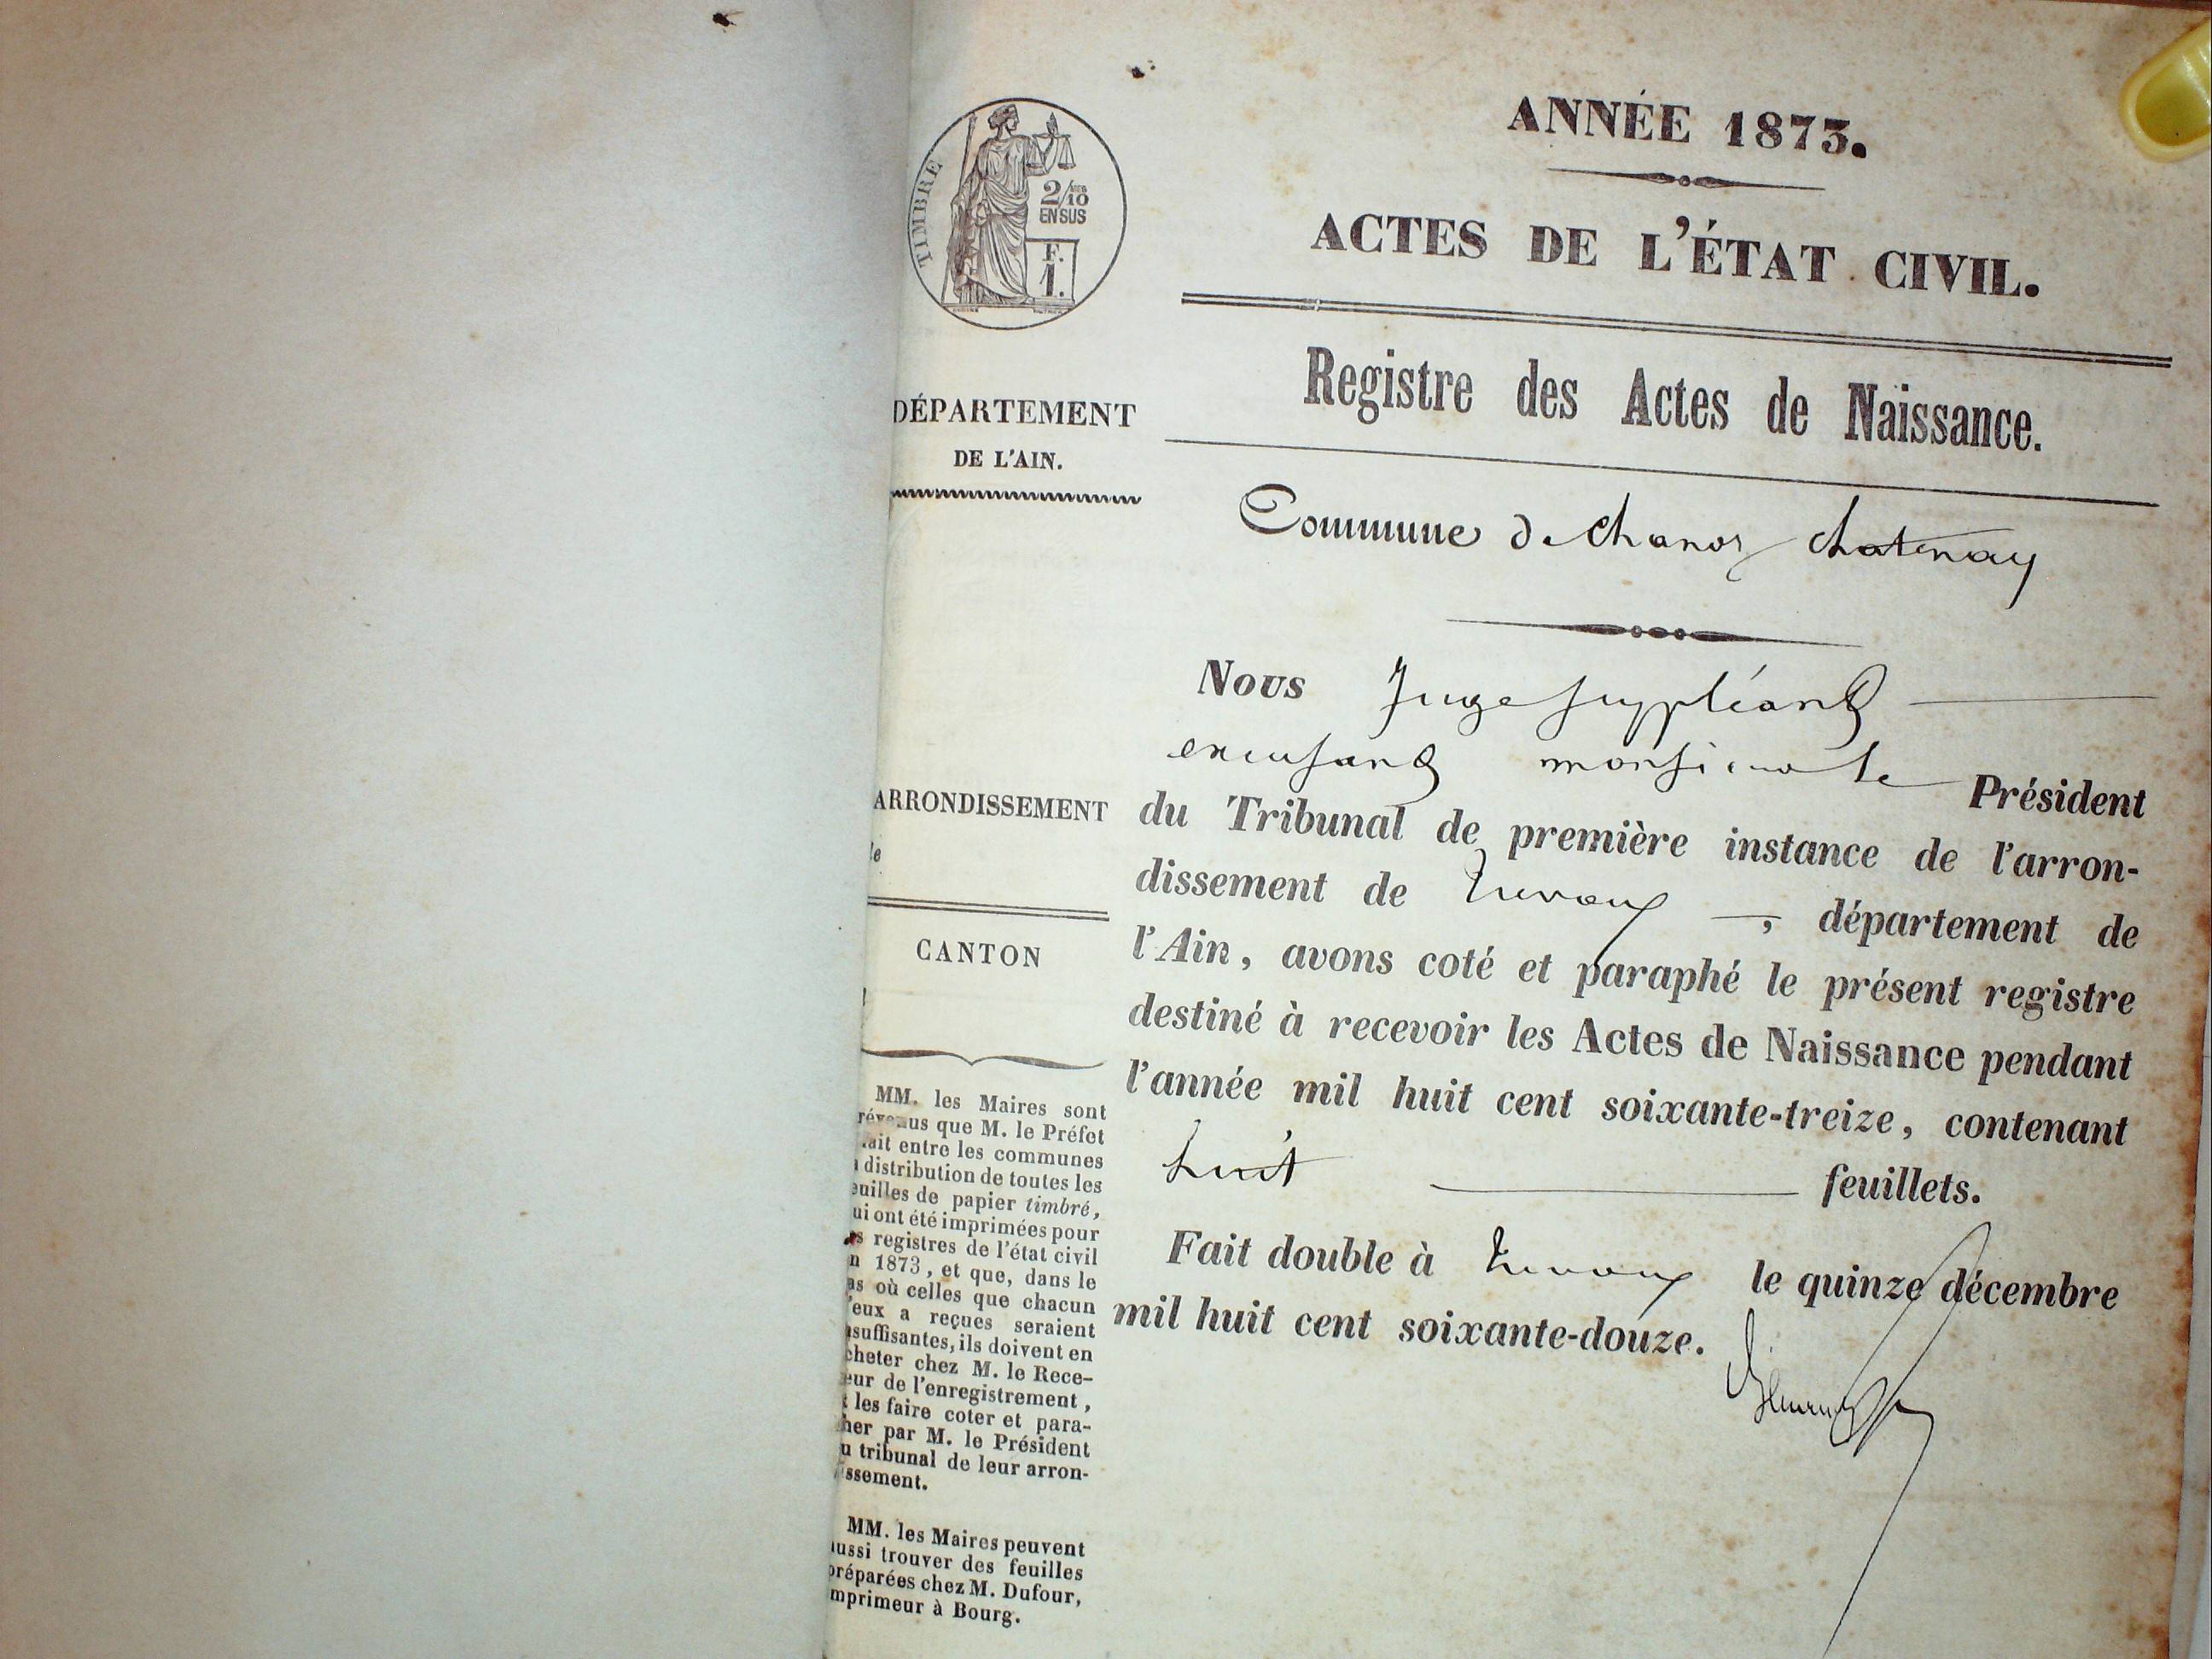 TIMBRE
2/10 MES
EN SUS
F.
1.
DÉPARTEMENT
DE L'AIN.
ARRONDISSEMENT
de
CANTON
MM. les Maires sont
révenus que M. le Préfet
fait entre les communes
a distribution de toutes les
euilles de papier timbré,
ui ont été imprimées pour
es registres de l'état civil
n 1873, et que, dans le
as où celles que chacun
'eux a reçues seraient
nsuffisantes, ils doivent en
cheter chez M. le Rece-
eur de l'enregistrement,
t les faire coter et para-
her par M. le Président
u tribunal de leur arron-
issement.
MM. les Maires peuvent
ussi trouver des feuilles
préparées chez M. Dufour,
mprimeur à Bourg.
ANNÉE 1873.
ACTES DE L'ÉTAT CIVIL.
Registre des Actes de Naissance.
Commune de Chanoz Chatenay
Nous Juge suppléant
excusant monsieur le Président
du Tribunal de première instance de l'arron-
dissement de Trévoux, département de
l'Ain, avons coté et paraphé le présent registre
destiné à recevoir les Actes de Naissance pendant
l'année mil huit cent soixante-treize, contenant
huit feuillets.
Fait double à Trévoux le quinze décembre
mil huit cent soixante-douze.